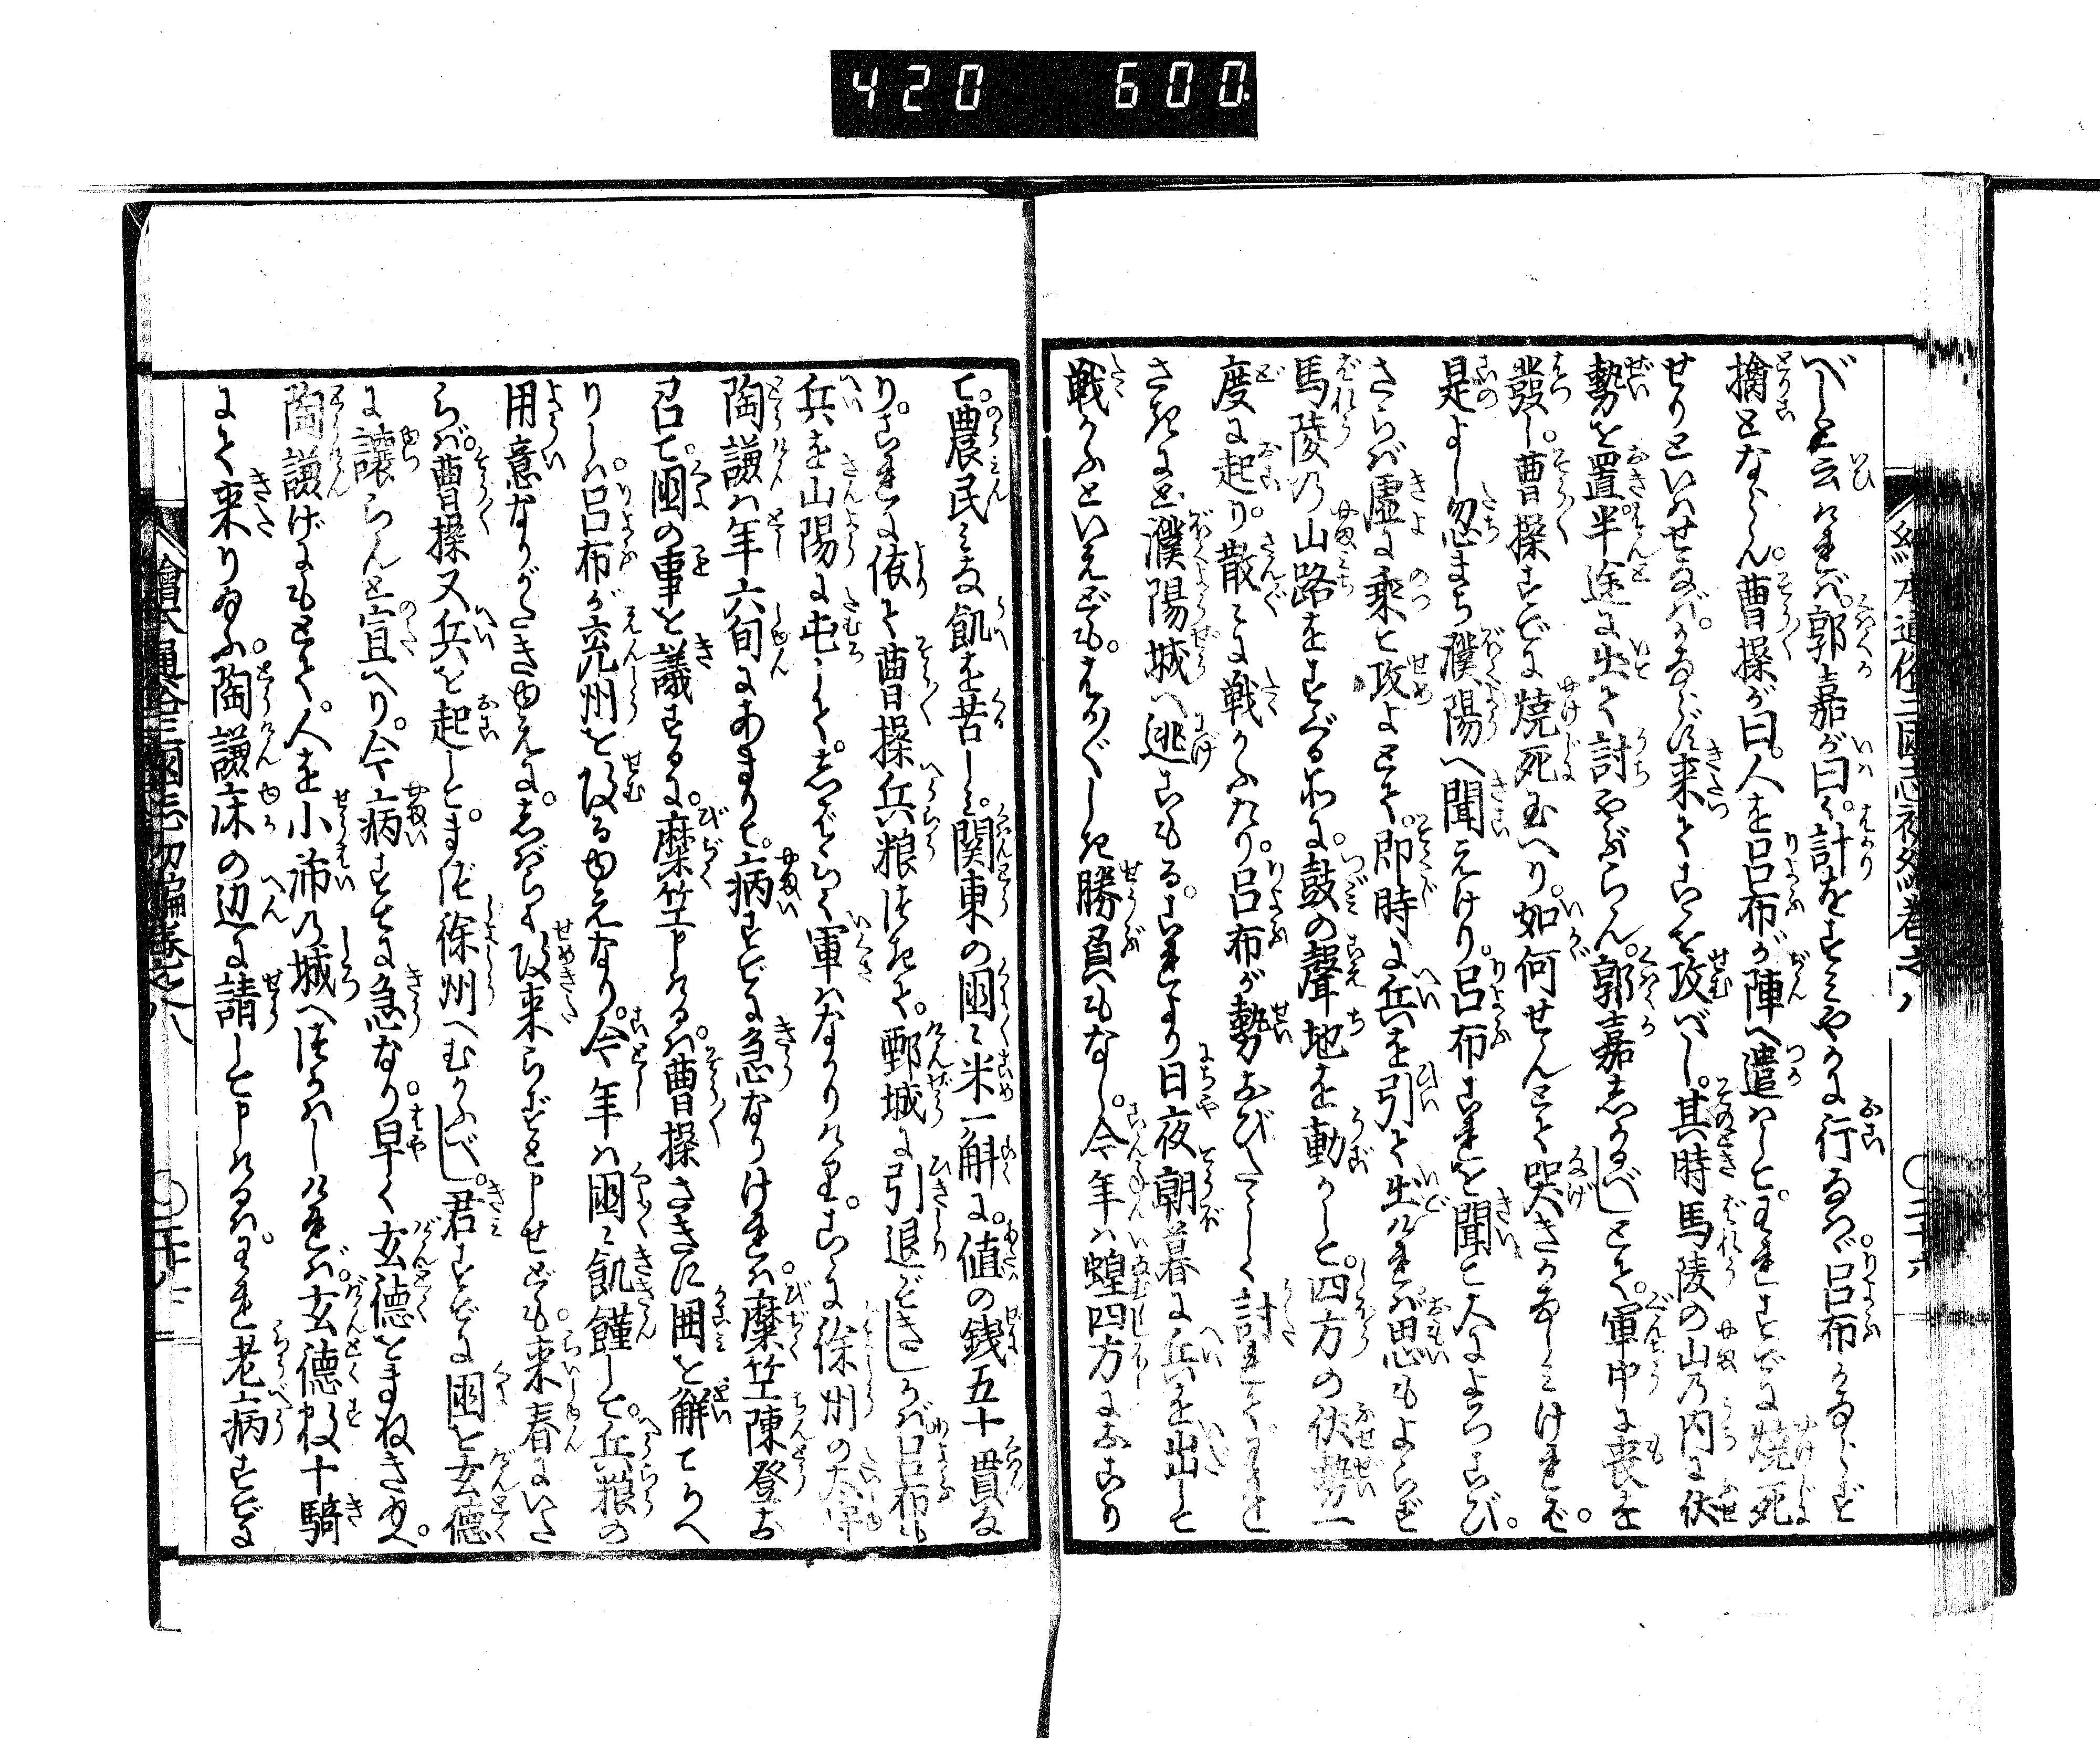 420 600
べしと云ければ。郭嘉が曰く。計をすみやかに行ゐバ。呂布かならず
擒とならん。曹操が曰。人を呂布が陣へ遣ハして。われすでに焼死
せりといハせなバ。かならず来てこゝを攻べし。其時馬陵の山乃内に伏
勢を置。半途に出て討やぶらん。郭嘉志かるべしとて。軍中に喪を
發し。曹操すでに焼死玉へり。如何せんとて哭きかなしミけれバ。
是よし忽まち濮陽へ聞えけり。呂布これを聞て大によろこび。
さらバ虚に乗て攻よとて。即時に兵を引て出ければ思もよらず
馬陵乃山路をすぐる処に。鼓の聲地を動かして。四方の伏勢一
度に起り。散々に戦かふたり。呂布が勢おびたゝしく討れて。
さきに濮陽城へ逃こもる。これより日夜朝暮に兵を出して
戦かふといえども。はか〴〵しき勝負もなし。今年ハ蝗四方におこり
て。農民ミな飢を苦しミ。関東の国々米一斛に。値の銭五十貫な
り。これに依て曹操兵粮つきて。鄄城に引退ぞきしかバ呂布も
兵を山陽に屯して。志ばらく軍ハなかりけり。こゝに徐州の太守
陶謙ハ年六旬にあまりて。病すでに急なりければ。糜竺陳登を
召て。国の事を議するに。糜竺申けるハ。曹操さきに囲を解てかへ
りしハ。呂布が兗州を攻るゆえなり。今年ハ国々飢饉して。兵粮の
用意なりがたきゆえに。志バらく攻来らずと申せども。来春にいた
らバ。曹操又兵を起して。まづ徐州へむかふべし。君すでに国を玄德
に讓らんと宣へり。今病すでに急なり。早く玄德をまねき玉へ。
陶謙げにもとて。人を小沛乃城へつかハしければ。玄德数十騎
にて来り玉ふ。陶謙床の辺に請して申けるハ。われ老病すでに
繪本通俗三國志初編巻之八